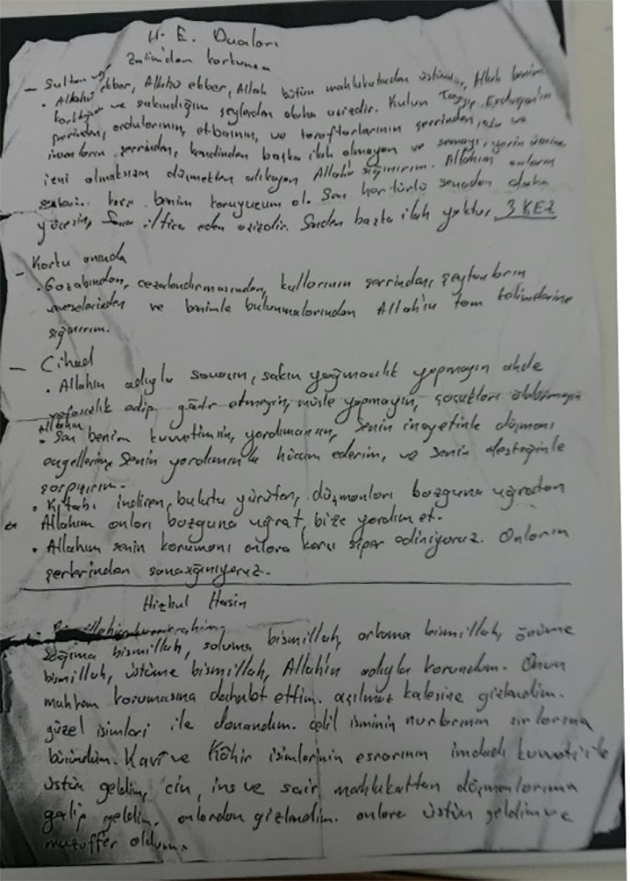 H. E. Duaları
Zalimden korkunca
- Sultan
• Allahu ekber, Allahu ekber, Allah bütün mahlukatından üstündür, Allah benim
korktuğum ve sakındığım şeylerden daha azizdir. Kulun Tayyip Erdoğan'ın
şerrinden, ordularının, etbaının, ve taraftarlarının şerrinden, ve
insanların şerrinden, kendinden başka ilah olmayan ve semayı yerin üzerine
izni olmaksızın düşmekten alıkoyan Allaha sığınırım. Allahım onların
karşı benim koruyucum ol. Sen her türlü senadan daha
yücesin, Sana iltica eden azizdir. Senden başka ilah yoktur. 3 KEZ
- Korku anında
• Gazabından, cezalandırmasından, kullarının şerrinden, şeytanların
vesveselerinden ve benimle bulunmalarından Allah'ın tam kelimelerine
sığınırım.
- Cihad
• Allahın adıyla savaşın, sakın yağmacılık yapmayın ahde
vefasızlık edip gadr etmeyin, müsle yapmayın, çocukları öldürmeyin
Allahım
• Sen benim kuvvetimsin, yardımcımsın, Senin inayetinle düşmanı
engellerim, Senin yardımınla hücum ederim, ve senin desteğinle
çarpışırım.
• Kitabı indiren, bulutu yürüten, düşmanları bozguna uğratan
Allahım onları bozguna uğrat, bize yardım et.
• Allahım senin korumanı onlara karşı siper ediniyoruz. Onların
şerlerinden sana sığınıyoruz.
Hizbul Hasin
Sağıma bismillah, soluma bismillah, arkama bismillah, önüme
bismillah, üstüme bismillah, Allah'ın adıyla korundum. Onun
mahrem korumasına dahalet ettim. açılmaz kalesine gizlendim.
güzel isimleri ile donandım. celil isminin nurlarının sırlarına
büründüm. Kavi ve Kahir isimlerinin esrarının imdadı kuvveti ile
üstün geldim, cin, ins ve sair mahlukattan düşmanlarıma
galip geldim. onlardan gizlendim. onlara üstün geldim ve
muzaffer oldum.